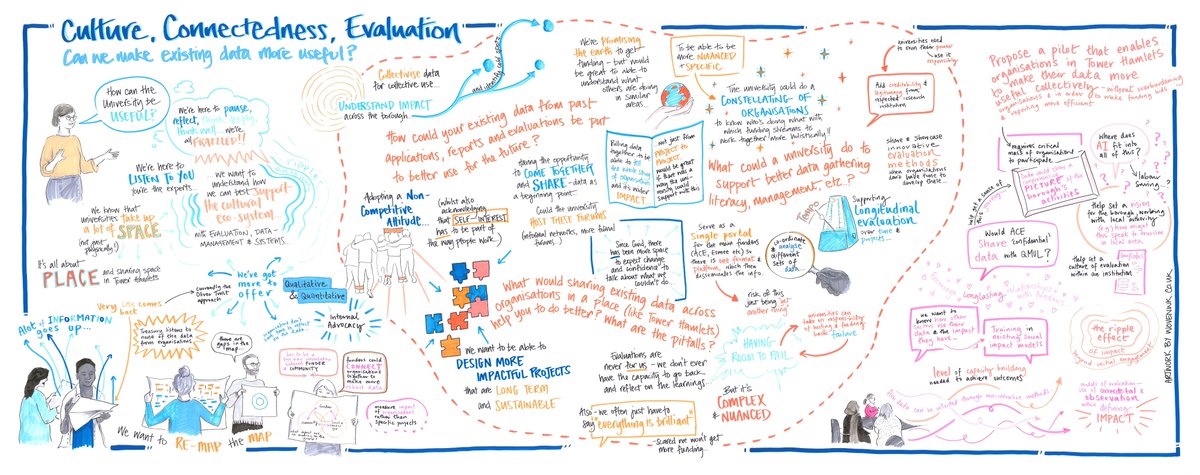 Culture, Connectedness, Evaluation
Can we make existing data more useful?
How can the
University be
USEFUL?
We're here to pause,
reflect,
think well... we're
all FRAZZLED!!
We're here to
LISTEN TO YOU
you're the experts
we want to
understand how
we can test + support
the cultural
eco-system...
with EVALUATION, DATA-
MANAGEMENT & SYSTEMS...
We know that
universities take up
a lot of SPACE
(not just
physically!)
It's all about
PLACE and sharing space
in Tower Hamlets
Very little comes
back
Alot of INFORMATION
goes up...
Treasury listens to
none of the data
from organisations
We've got
more to
offer
Qualitative
& Quantitative
Internal
Advocacy
those are
gaps in the
map
funders could
CONNECT
organisations
together to
make more
measure impact
rather than
specific projects
We want to RE-MAP the MAP
Collectivise data
for collective use...
and identify cold spots
UNDERSTAND IMPACT
across the borough
How could your existing data from past
applications, reports and evaluations be put
to better use for the future?
Adopting a Non-
Competitive
Attitude...
(whilst also
acknowledging
that SELF-INTEREST
has to be part of
the way people work...)
having the opportunity
to COME TOGETHER
and SHARE - data as
a beginning point...
Could the university
HOST THESE FORUMS
(informal networks, more formal
forums)
Since Covid, there
has been more space
to expect change
and 'confidence' to
talk about what we
couldn't do
What would sharing existing data across
organisations in a place (like Tower Hamlets)
help you to do better? What are the
pitfalls?
We want to be able to
DESIGN MORE
IMPACTFUL PROJECTS
that are LONG TERM
and SUSTAINABLE
Evaluations are
never for us - we don't ever
have the capacity to go back-
and reflect on the learnings...
Also - we often just have to
say "everything is brilliant"
- scared we won't get
more funding...
We're PROMISING
the earth to get
funding - but would
be great to able to
understand what
others are doing in
similar areas...
To be able to be
more NUANCED +
SPECIFIC
The university could do a
CONSTELLATING OF
ORGANISATIONS
to know who's doing what with
which funding streams to
work together more holistically!!
Pulling data
together to be
able to
and it's wider
IMPACT
not just have
PROJECT to
PROJECT
would be great
if there was a
way the uni-
versity could
support with this
What could a university do to
support better data gathering
literacy, management, etc...?
Serve as a
Single portal
for the main funders
(ACE, Esmee etc) so
there is one format &
platform, which then
disseminates the info.
Supporting
Longitudinal
evaluation
over time &
projects...
co-ordinate
& analyse
different
sets of
data
risk of this
just being just
another thing
universities can
take on responsibility
failure
HAVING
ROOM TO FAIL
But it's
COMPLEX
& NUANCED
universities need
to own their power
+ use it
responsibly
Add credibility &
legitimacy from
respected research
institution
share & showcase
innovative
evaluation
methods
when organisations
don't have time to
develop these...
Propose a pilot that enables
organisations in Tower Hamlets
to make their data more
useful collectively - without overburdening
organisations & in order to make funding bids
& reporting more efficient
requires critical
mass of organisations
to participate
PICTURE of the
borough's
activities
Where does
AI fit into
all of this?
labour
saving...?
Would ACE
Share 'confidential'
data with QMUL?
Help set a vision
for the borough, working
with local authority
help set a
culture of evaluation
within an institution
Longlasting
we want to
know how other
teams use their
data & the impact
they have -
Training in
existing social
impact models
the ripple
effect
of impact
beyond initial engagement
level of capacity building
needed to achieve outcomes
when
defining
IMPACT
ARTWORK BY WOVENINK.CO.UK